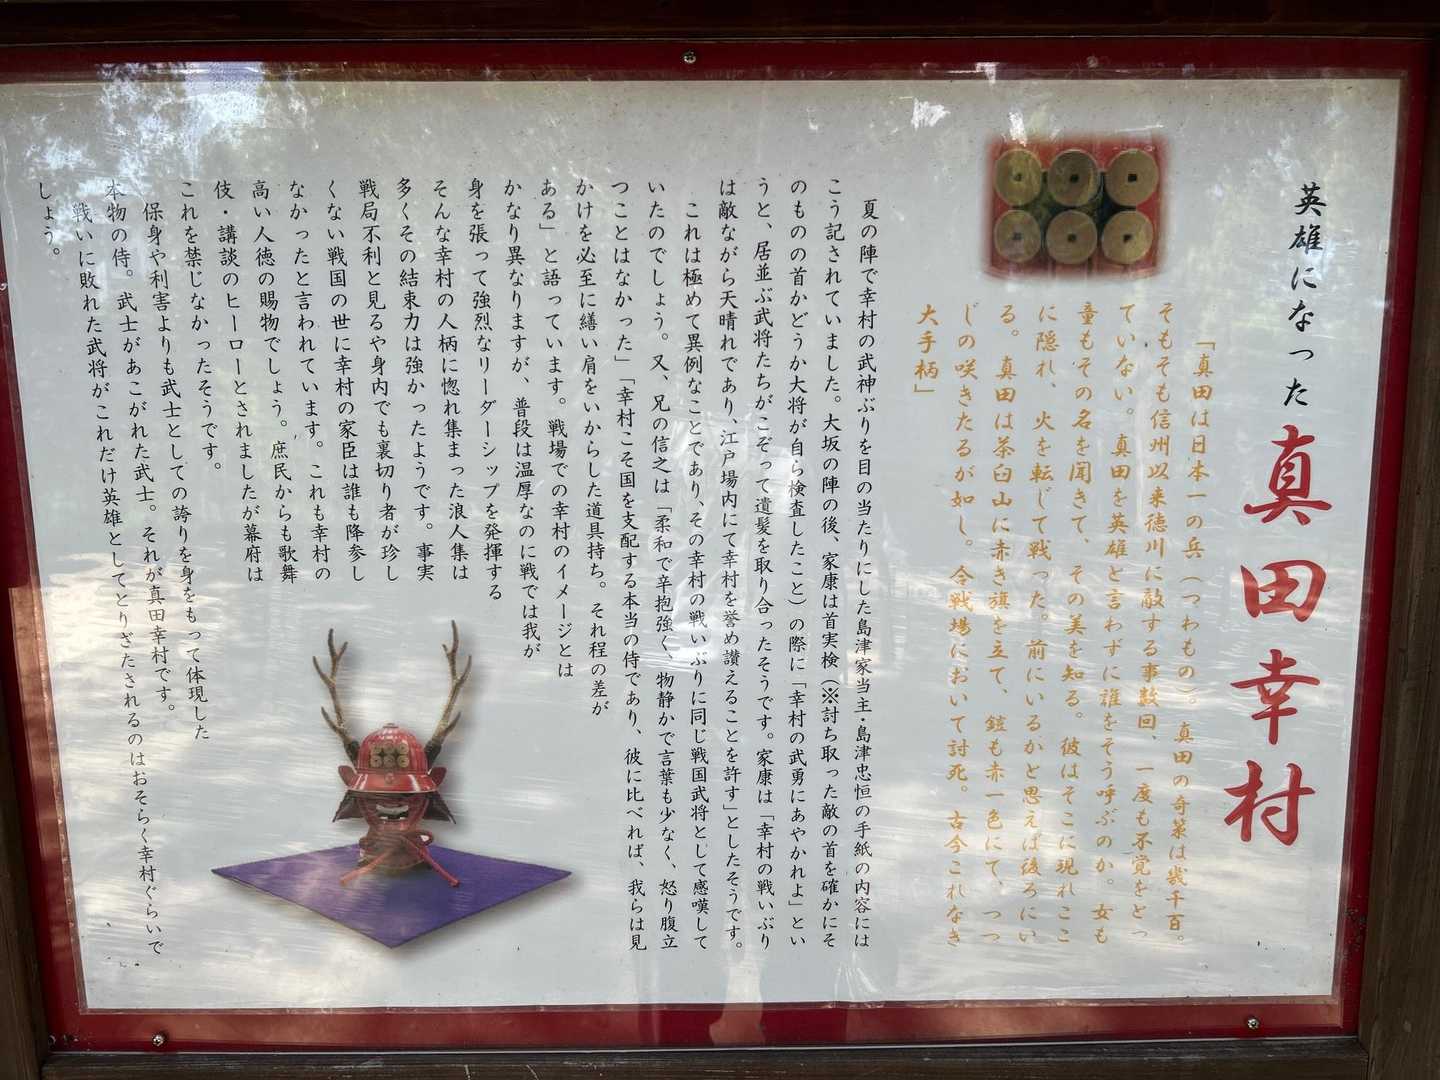 英雄になった真田幸村
「真田は日本一の兵(つわもの)。真田の奇策は幾千百。
そもそも信州以来徳川に敵する事数回、一度も不覚をとっ
ていない。真田を英雄と言わずに誰をそう呼ぶのか。女も
童もその名を聞きて、その美を知る。彼はそこに現れここ
に隠れ、火を転じて戦った。前にいるかと思えば後ろにい
る。真田は茶臼山に赤き旗を立て、鎧も赤一色にて、つつ
じの咲きたるが如し。合戦場において討死。古今これなき
大手柄」
夏の陣で幸村の武神ぶりを目の当たりにした島津家当主・島津忠恒の手紙の内容には
こう記されていました。大坂の陣の後、家康は首実検(※討ち取った敵の首を確かにそ
のものの首かどうか大将が自ら検査したこと)の際に「幸村の武勇にあやかれよ」とい
うと、居並ぶ武将たちがこぞって遺髪を取り合ったそうです。家康は「幸村の戦いぶり
は敵ながら天晴れであり、江戸場内にて幸村を誉め讃えることを許す」としたそうです。
これは極めて異例なことであり、その幸村の戦いぶりに同じ戦国武将として感嘆して
いたのでしょう。又、兄の信之は「柔和で辛抱強く、物静かで言葉も少なく、怒り腹立
つことはなかった」「幸村こそ国を支配する本当の侍であり、彼に比べれば、我らは見
かけを必至に繕い肩をいからした道具持ち。それ程の差が
ある」と語っています。戦場での幸村のイメージとは
かなり異なりますが、普段は温厚なのに戦では我が
身を張って強烈なリーダーシップを発揮する
そんな幸村の人柄に惚れ集まった浪人集は
多くその結束力は強かったようです。事実
戦局不利と見るや身内でも裏切り者が珍し
くない戦国の世に幸村の家臣は誰も降参し
なかったと言われています。これも幸村の
高い人徳の賜物でしょう。庶民からも歌舞
伎・講談のヒーローとされましたが幕府は
これを禁じなかったそうです。
保身や利害よりも武士としての誇りを身をもって体現した
本物の侍。武士があこがれた武士。それが真田幸村です。
戦いに敗れた武将がこれだけ英雄としてとりざたされるのはおそらく幸村ぐらいで
しょう。